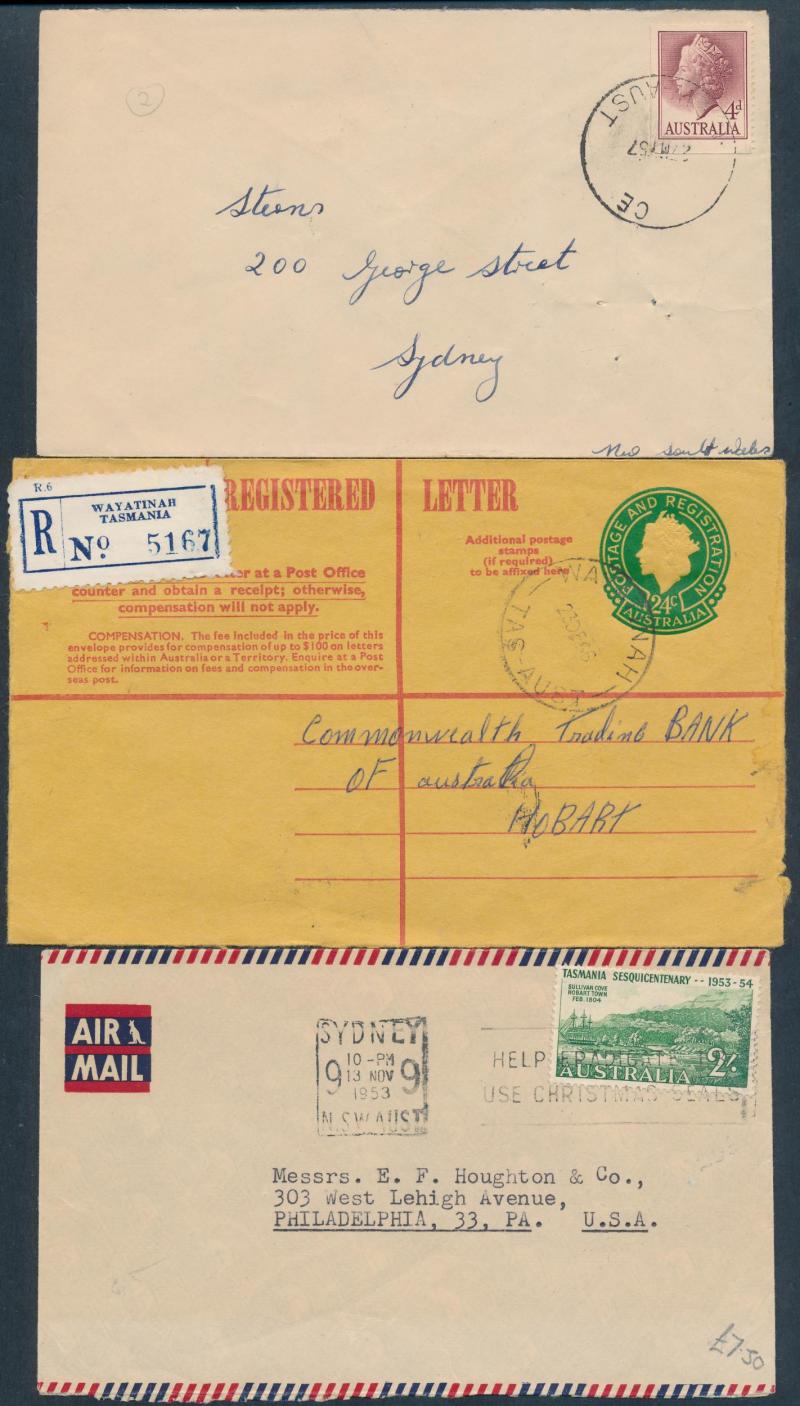 2
4d
AUSTRALIA
AUST
57
CE
Steons
200 George Street
Sydney
New South Wales
R.6
WAYATINAH
TASMANIA
R No 5167
REGISTERED LETTER
at a Post Office
counter and obtain a receipt; otherwise,
compensation will not apply.
COMPENSATION. The fee included in the price of this
envelope provides for compensation of up to $100 on letters
addressed within Australia or a Territory. Enquire at a Post
Office for information on fees and compensation in the over-
seas post.
Additional postage
stamps
(if required)
to be affixed here
POSTAGE AND REGISTRATION
24c
AUSTRALIA
23DE66
TAS-AUST
Commonwealth Trading BANK
OF australia
HOBART
AIR
MAIL
SYDNEY
10-PM
9 13 NOV 9
1953
N.S.W. AUST
HELP ERADICATE
USE CHRISTMAS SEALS
TASMANIA SESQUICENTENARY -- 1953-54
SULLIVAN COVE
HOBART TOWN
FEB. 1804
2/-
AUSTRALIA
Messrs. E. F. Houghton & Co.,
303 West Lehigh Avenue,
PHILADELPHIA, 33, PA. U.S.A.
£7.50